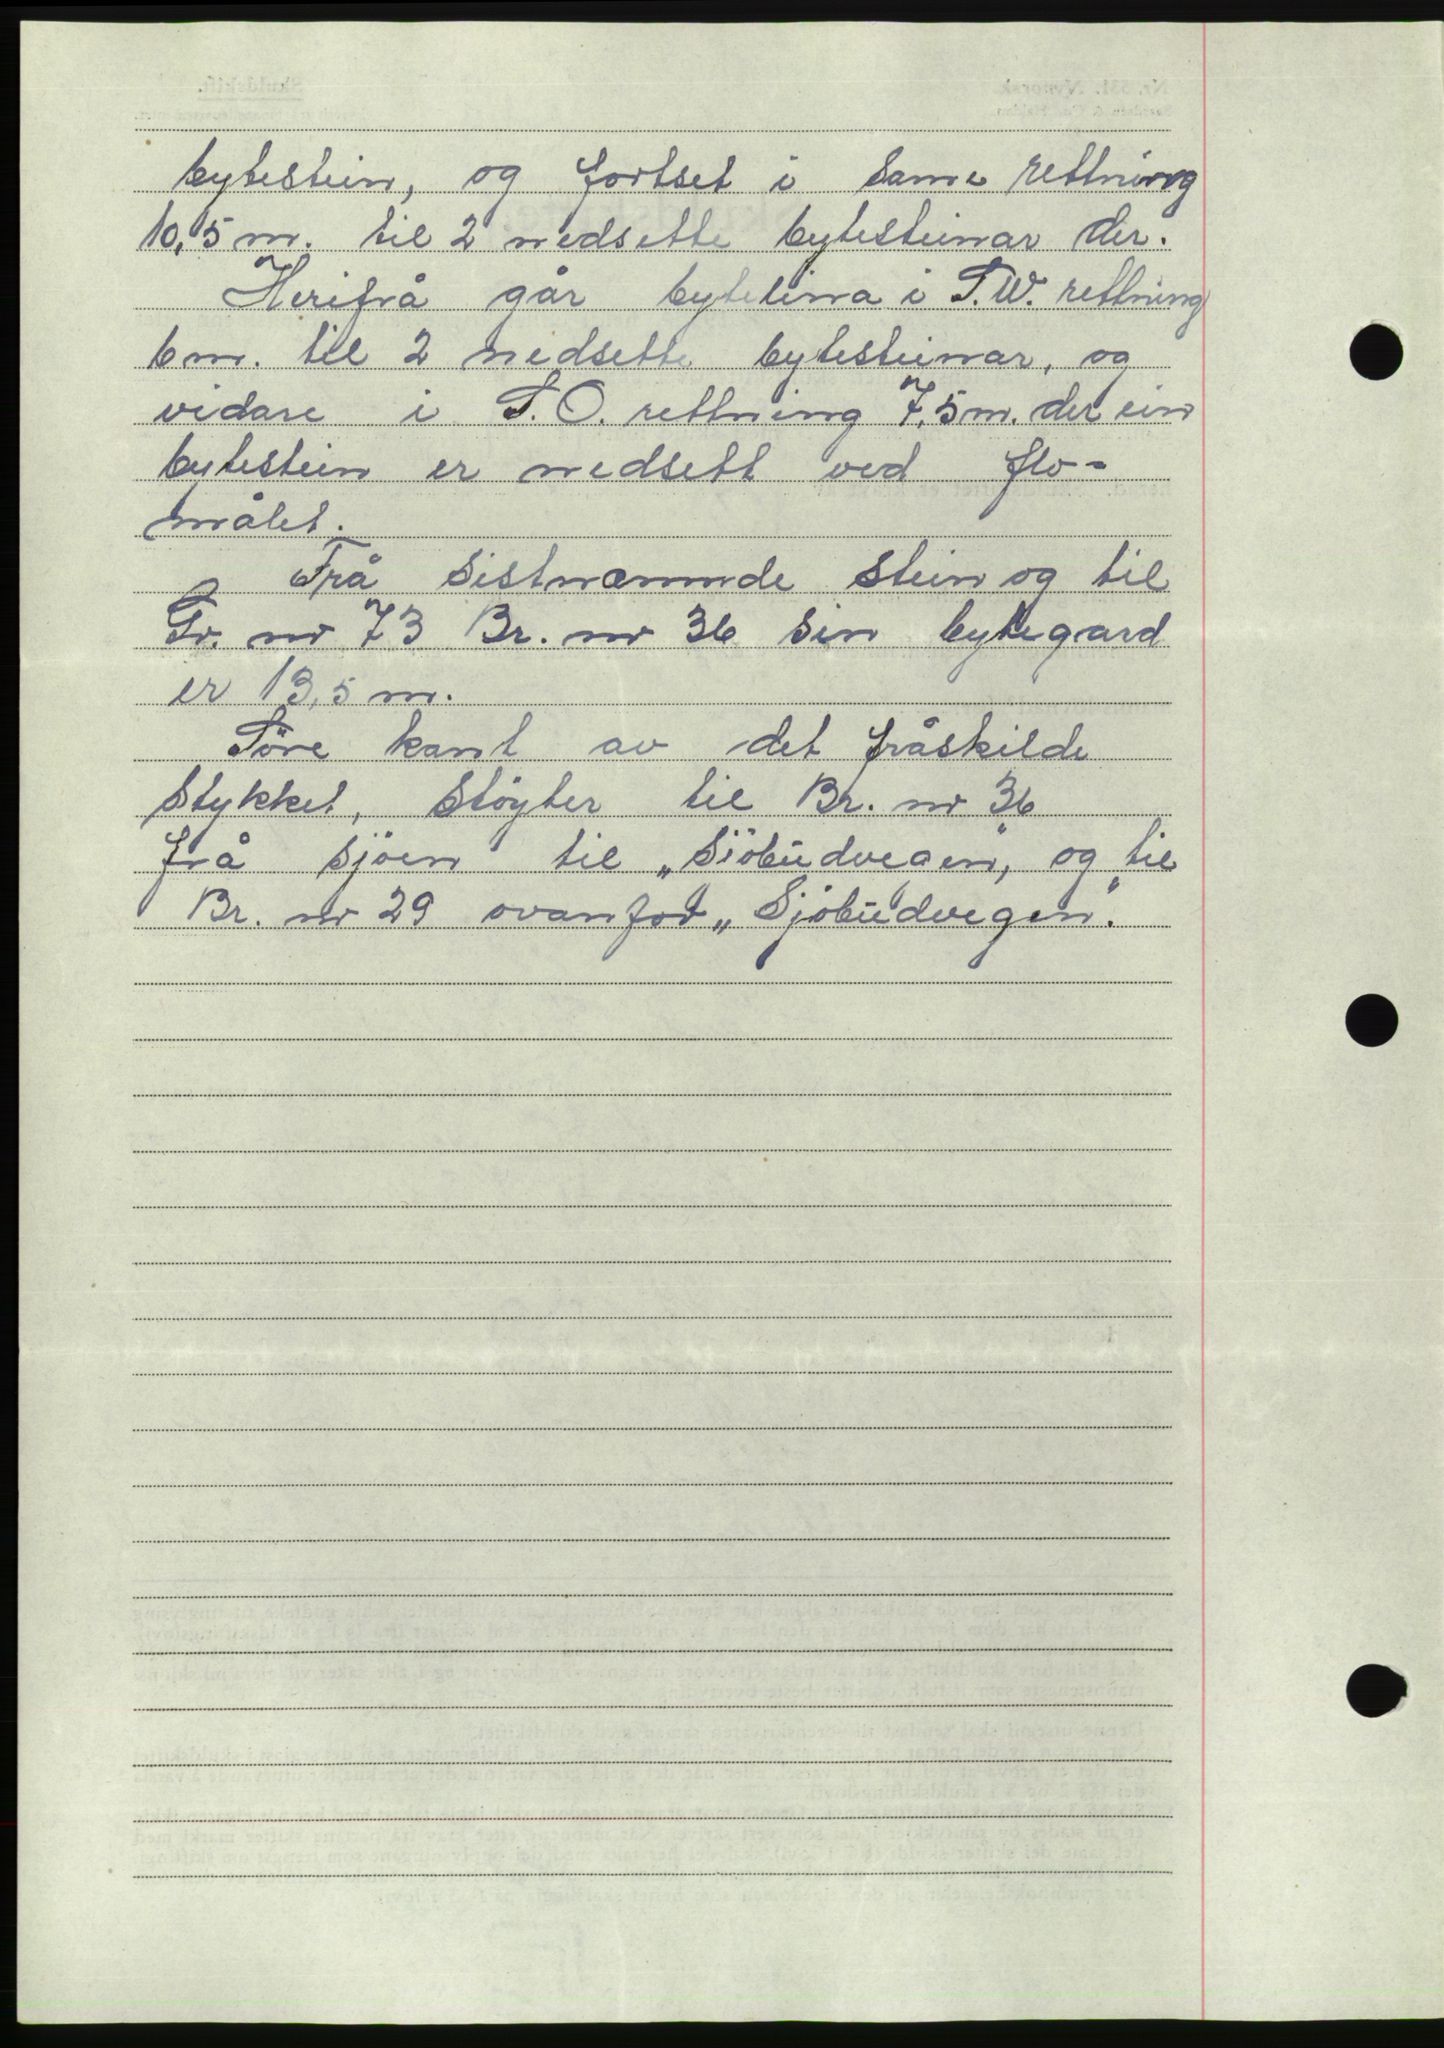 bytestein, og fortset i same rettning
10,5 m. til 2 nedsette bytesteinar der.
Herifrå går bytelina i S.W. rettning
6 m. til 2 nedsette bytesteinar, og
vidare i S.O. rettning 7,5 m. der ein
bytestein er nedsett ved flo-
målet.
Frå sistnemnde stein og til
Gr. nr 73 Br. nr 36 sin bytegard
er 13,5 m.
Söre kant av det fråskilde
stykket, stöyter til Br. nr 36
frå sjöen til „Sjöbudvegen", og til
Br. nr 29 ovanfor „Sjöbudvegen".